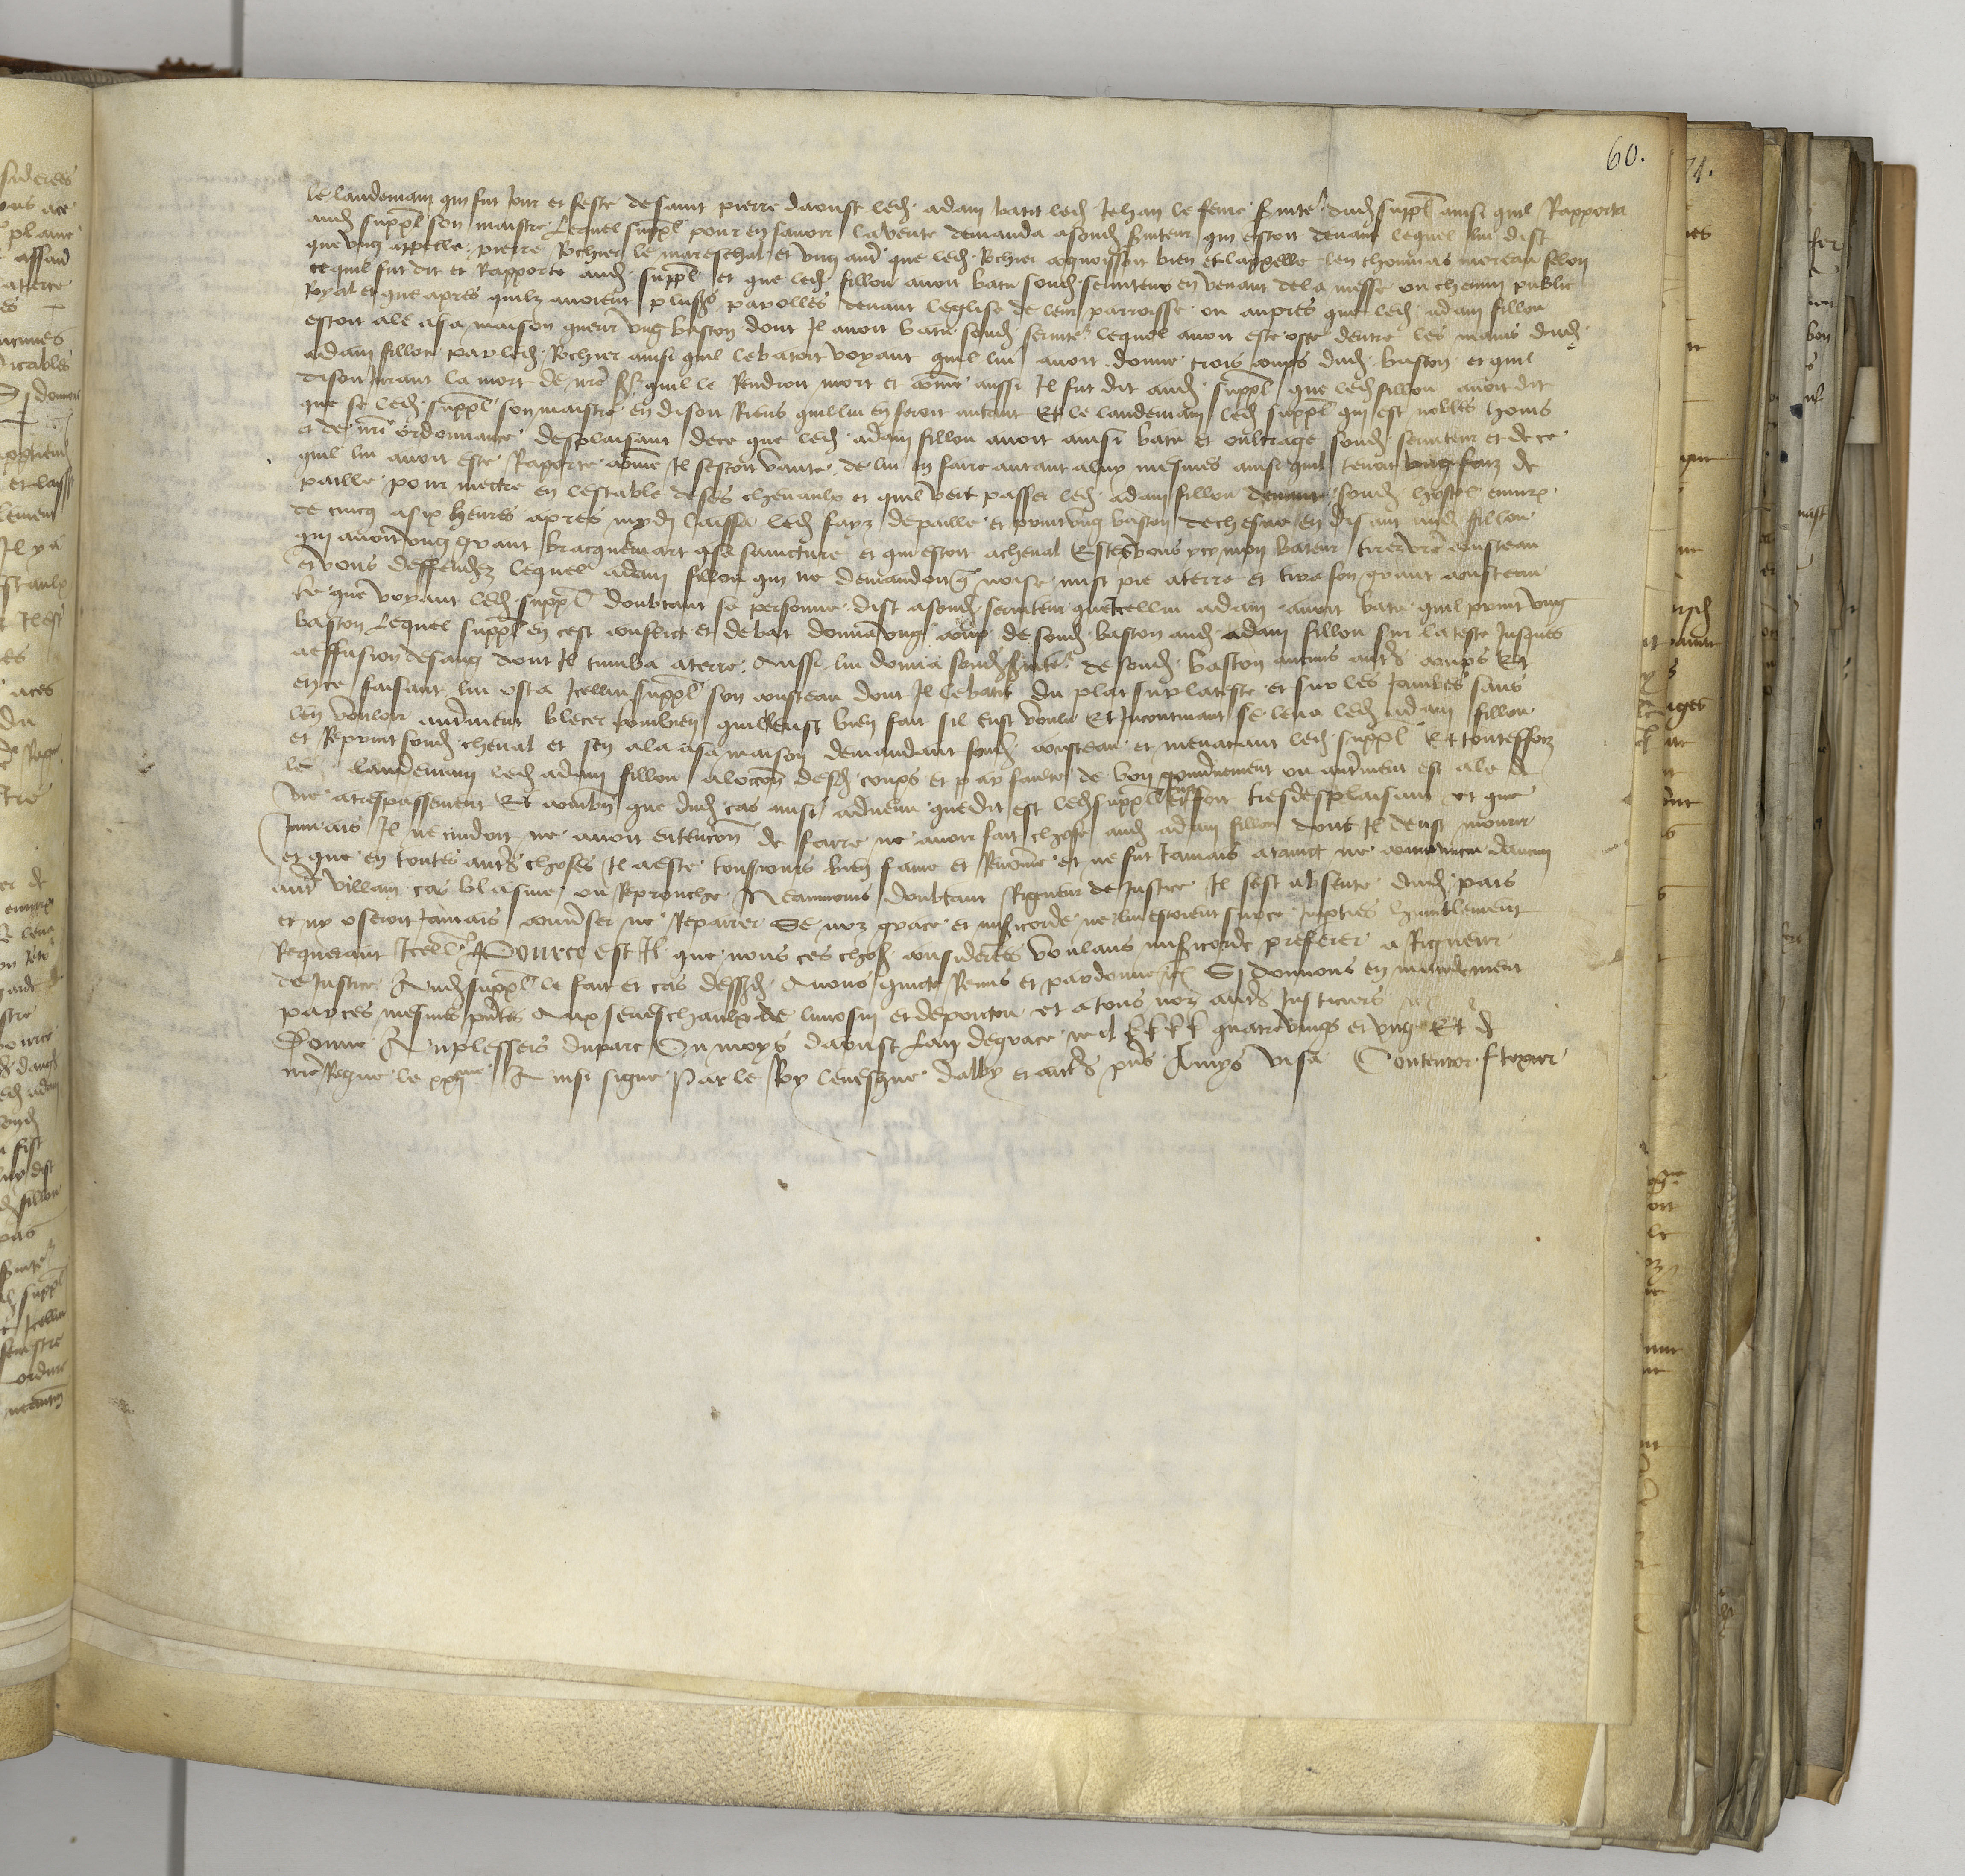 60.
le landemain qui fut jour et feste de saint pierre daoust led. adam batit led. Jehan le feure suite.r dud. suppl ainsi quil Rapporta
aud. suppl son maistre Lequel suppl pour en sauoir la verite demanda a sond. suiteur qui estoit deuant lequel lui dist
que ung appelle pierre Rochier le mareschal et ung autre que led. Rochier cognoissoit bien et lappelle len thommas moreau selon
ce quil fut dit et Rapporte aud. suppl et que led. fillon auoit batu sond. seruiteur en venant de la messe ou chemin public
Royal et que apres quilz auoient plus.rs parolles deuant leglise de leur parroisse ou aupres que led. adam fillon
estoit ale a sa maison querir ung baston dont Il auoit batu sond. seruite.r lequel auoit este oste dentre les mains dud.
adam fillon par led. Rochier ainsi quil le batoit voyant quil lui auoit donne trois coups dud. baston et quil
disoit Jurant la mort de nre sgr quil le Rendroit mort et come aussi Il fut dit aud. suppl que led. fillon auoit dit
que se led. suppl son maistre en disoit Riens quil lui en feroit autant Et le landemain led. suppl qui est nobles homs
et de nre ordonnance desplaisant de ce que led. adam fillon auoit ainsi batu et oultrage sond. seruiteur et de ce
quil lui auoit este Raporte come Il sestoit vante de lui en faire autant a luy mesmes ainsi quil tenoit ung faiz de
paille pour mectre en lestable de ses cheuaulx et quil veit passer led. adam fillon deuant sond. hostel enuiron
de cincq a six heures apres mydj laissa led. fayz de paille et print ung baston de chesne en disant aud. fillon
qui auoit ung grant bracquemart a sa saincture et qui estoit a cheual Estes vous ycy mon bateur tirez vre cousteau
et vous deffendez lequel adam fillon qui ne demandoit q noise mist pie a terre et tira son grant cousteau
ce que voyant led. suppl doubtant sa personne dist a sond. seruiteur que Icellui adam auoit batu quil print ung
baston Lequel suppl en cest conflict et debat donna ung coup de sond. baston aud. adam fillon sur la teste Jusques
a effusion de sang dont Il tumba a terre Aussi lui donna sond. suite.r de sond. baston aucuns autres coups Et
en ce faisant lui osta Icellui suppl son cousteau dont Il le batit du plat sur la teste et sur les Jambes sans
len vouloir autrement blecer combien quil leust bien fait sil eust voulu Et Incontinant se leua led. adam fillon
et Reprint sond. cheual et sen ala a sa maison demandant sond. cousteau et menacant led. suppl Et touteffoiz
le landemain led. adam fillon a locon desd. coups et par faulte de bon gouuernement ou autrement est ale de
vie a trespassement Et combn que dud. cas ainsi aduenu que dit est led. suppl en soit tresdesplaisant et que
Jamais Il ne cuidoit ne auoit entencon de faire ne auoir fait chose aud. adam fillon dont Il deust mourir
et que en toutes autres choses Il a este tousiours bien fame et Renome et ne fut Jamais ataint ne conuaincu daucun
autre villain cas blasme ou Reprouche Neantmoins doubtant Rigueur de Justice Il sest absente dud. pais
et ny oseroit Jamais conuerser ne Repairer Se noz grace et misicorde ne lui estoient sur ce Imparties humblement
Requerant Icell.e Pource est Il que nous ces choses considerees voulans misicorde preferer a Rigueur
de Justice Aud. suppl le fait et cas dessd. Auons quicte Remis et pardonne etc Sj donnons en mandement
par ces mesmes pntes Aux seneschaulx de limosin et de poictou et a tous noz autres Justiciers
Donne Au plesseis du parc Ou moys daoust Lan de grace mil cccc quatrevings et ung Et de
nre Regne le xxj.me Ainsi signe Par le Roy leuesque dalby et autres pns Amys visa Contentor f texier